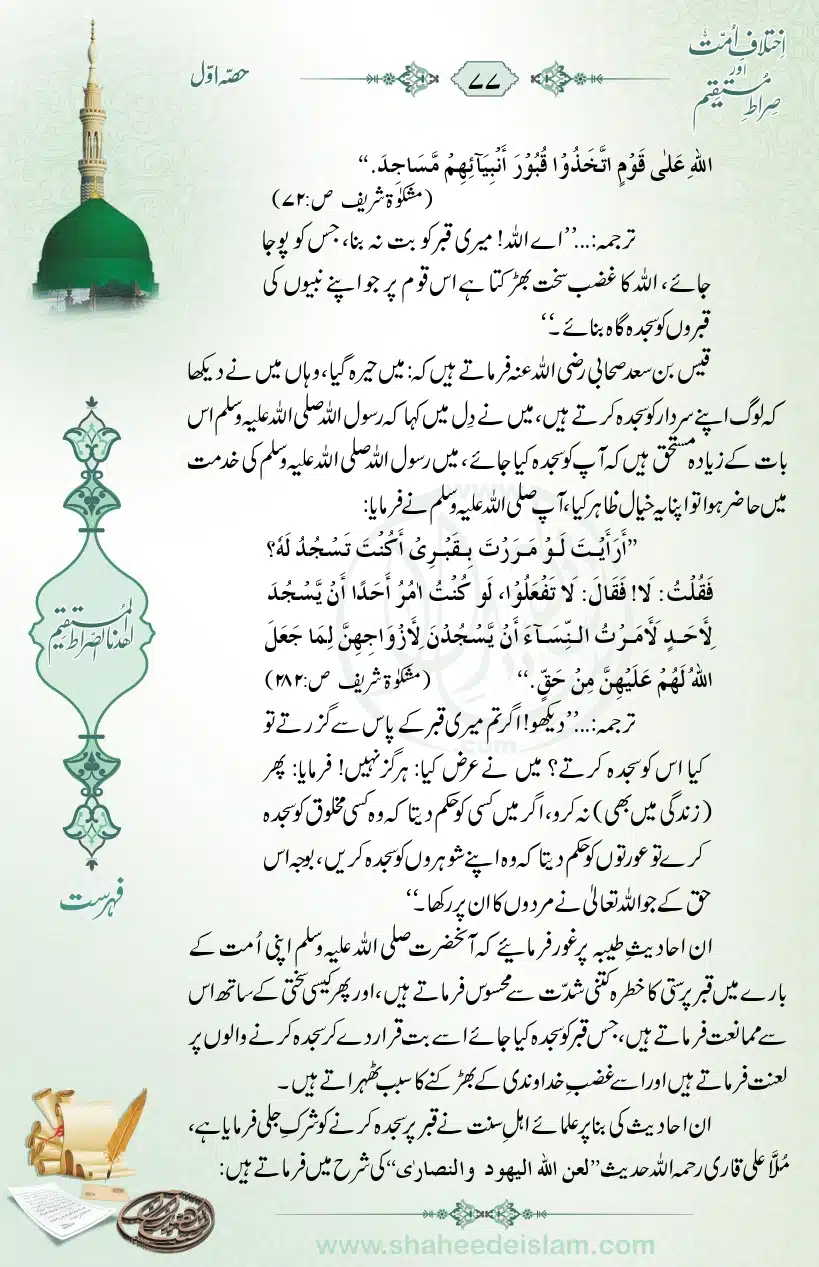 اِختلافِ اُمّت
اور
صراطِ مُستقیم
۷۷
حصّہ اوّل
اللهِ عَلٰى قَوْمٍ اتَّخَذُوْا قُبُوْرَ أَنْبِيَآئِهِمْ مَّسَاجِدَ.“
(مشکوٰۃ شریف ص:۷۲)
ترجمہ:...’’اے اللہ! میری قبر کو بت نہ بنا، جس کو پوجا
جائے، اللہ کا غضب سخت بھڑکتا ہے اس قوم پر جو اپنے نبیوں کی
قبروں کو سجدہ گاہ بنائے۔‘‘
قیس بن سعد صحابی رضی اللہ عنہ فرماتے ہیں کہ: میں حیرہ گیا، وہاں میں نے دیکھا
کہ لوگ اپنے سردار کو سجدہ کرتے ہیں، میں نے دِل میں کہا کہ رسول اللہ صلی اللہ علیہ وسلم اس
بات کے زیادہ مستحق ہیں کہ آپ کو سجدہ کیا جائے، میں رسول اللہ صلی اللہ علیہ وسلم کی خدمت
میں حاضر ہوا تو اپنا یہ خیال ظاہر کیا، آپ صلی اللہ علیہ وسلم نے فرمایا:
”أَرَأَيْتَ لَوْ مَرَرْتَ بِقَبْرِىْ أَكُنْتَ تَسْجُدُ لَهٗ؟
فَقُلْتُ: لَا! فَقَالَ: لَا تَفْعَلُوْا، لَو كُنْتُ اٰمُرُ أَحَدًا أَنْ يَّسْجُدَ
لِأَحَدٍ لَأَمَرْتُ النِّسَآءَ أَنْ يَّسْجُدْنَ لِأَزْوَاجِهِنَّ لِمَا جَعَلَ
اللهُ لَهُمْ عَلَيْهِنَّ مِنْ حَقٍّ.“ (مشکوٰۃ شریف ص:۲۸۲)
ترجمہ:...’’دیکھو! اگر تم میری قبر کے پاس سے گزرتے تو
کیا اس کو سجدہ کرتے؟ میں نے عرض کیا: ہرگز نہیں! فرمایا: پھر
(زندگی میں بھی) نہ کرو، اگر میں کسی کو حکم دیتا کہ وہ کسی مخلوق کو سجدہ
کرے تو عورتوں کو حکم دیتا کہ وہ اپنے شوہروں کو سجدہ کریں، بوجہ اس
حق کے جو اللہ تعالیٰ نے مردوں کا ان پر رکھا۔‘‘
ان احادیثِ طیبہ پر غور فرمائیے کہ آنحضرت صلی اللہ علیہ وسلم اپنی اُمت کے
بارے میں قبر پرستی کا خطرہ کتنی شدّت سے محسوس فرماتے ہیں، اور پھر کیسی سختی کے ساتھ اس
سے ممانعت فرماتے ہیں، جس قبر کو سجدہ کیا جائے اسے بت قرار دے کر سجدہ کرنے والوں پر
لعنت فرماتے ہیں اور اسے غضبِ خداوندی کے بھڑکنے کا سبب ٹھہراتے ہیں۔
ان احادیث کی بنا پر علمائے اہلِ سنت نے قبر پر سجدہ کرنے کو شرکِ جلی فرمایا ہے،
مُلَّا علی قاری رحمہ اللہ حدیث ’’لعن الله اليهود والنصارٰى‘‘ کی شرح میں فرماتے ہیں:
اهدنا الصّراط المُستقيم
فہرست
www.shaheedeislam.com